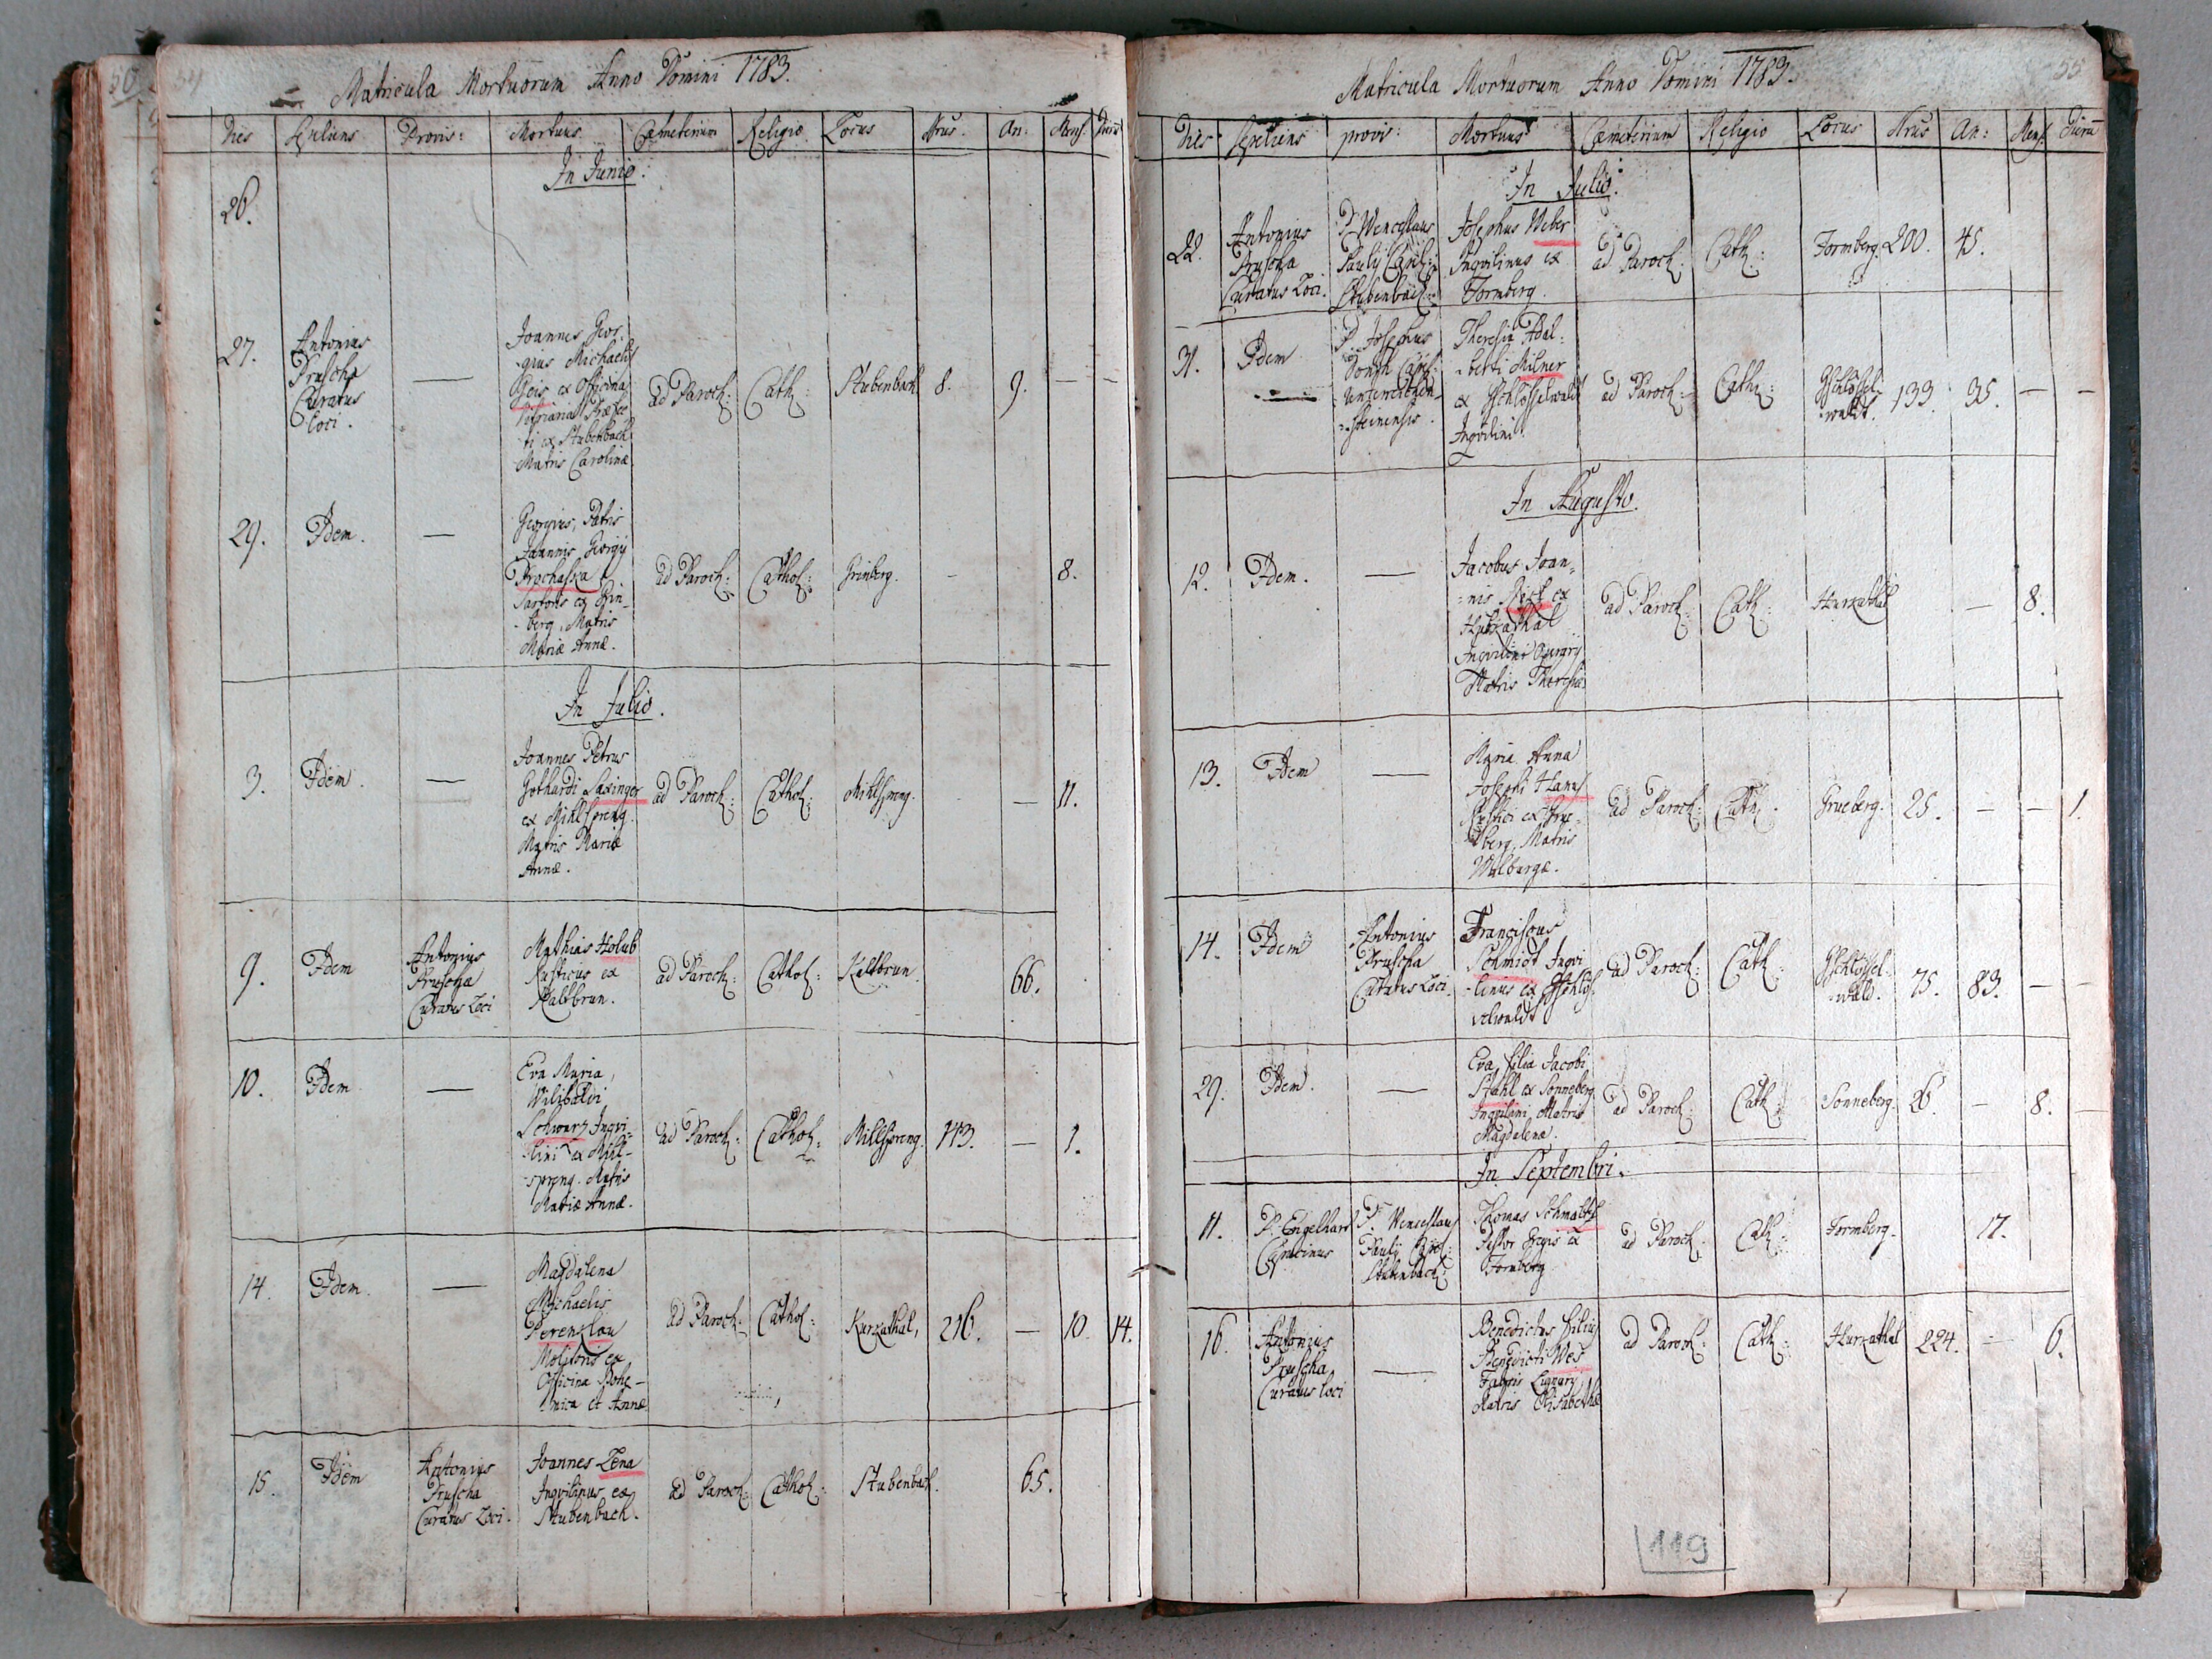 54
Matricula Mortuorum Anno Domini 1783.
Dies Sepeliens Provis: Mortuus Cæmeterium Religio Locus Nrus. An: Mens. Dieru
In Junio.
26.
27.
Antonius
Pruscha
Curatus
Loci.
—
Joannes Geor-
gius Michaelis
Geis ex Officina
ex Stubenbach
Matris Carolinæ
ad Paroch: Cath: Stubenbach 8. 9. — —
29. Idem. —
Georgius, Patris
Joannis Georgij
Prochaska
Sartoris ex Grin-
berg, Matris
Mariæ Annæ.
ad Paroch: Cathol: Grinberg. — 8.
In Julio.
3. Idem. —
Joannes Petrus
Gothardi Saxinger
ex Mihlspreng.
Matris Mariæ
Annæ.
ad Paroch: Cathol: Mihlspreng. — 11.
9. Idem
Antonius
Pruscha
Curatus Loci
Mathias Holub
Rusticus ex
Kaltbrun.
ad Paroch: Cathol: Kaltbrun. 66.
10. Idem —
Eva Maria,
Wilibaldi
Schwarz Inqvi-
lini ex Mihl-
spreng. Matris
Mariæ Annæ.
ad Paroch: Cathol: Millspreng. 143. — 1.
14. Idem. —
Magdalena
Michaelis
Perenzlau
Molitoris ex
Officina Bohe-
mica et Annæ
ad Paroch: Cathol: Kurzathal, 216. — 10. 14.
15. Idem
Antonius
Pruscha
Curatus Loci.
Joannes Lena
Inqvilinus ex
Stubenbach.
ad Paroch: Cathol: Stubenbach. 65.
55
Matricula Mortuorum Anno Domini 1783.
Dies Sepeliens provis: Mortuus Cæmeterium Religio Locus Nrus An: Mens. Dieru
In Julio.
22.
Antonius
Pruscha
Curatus Loci.
P. Wenceslaus
Paulij Capel:
Stubenbac:
Josephus Weber
Inqvilinus ex
Formberg.
ad Paroch: Cath: Formberg. 200. 45.
31. Idem
P. Josephus
Capel:
steinensis.
Theresia Adal-
berti Milner
ex Gschlosselwald
Inqvilini.
ad Paroch: Cath: Gschlossel-
waldt. 133. 35. — —
In Augusto.
12. Idem. —
Jacobus Joan-
nis ex
Hurkathal
Inqvilini
Matris Theresiæ
ad Paroch: Cath: Hurkathal — 8.
13. Idem —
Maria Anna
Josephi Hanus
Rustici ex Grue-
berg, Matris
Walburgæ.
ad Paroch: Cath: Grueberg. 25. — — 1.
14. Idem
Antonius
Pruscha
Curatus Loci.
Franciscus
Schmidt Inqvi-
linus ex Gschlös-
selwaldt
ad Paroch: Cath: Gschlössel-
wald. 75. 83. — —
29. Idem. —
Eva, filia Jacobi
Stahl ex Sonneberg
Inqvilini, Matris
Magdalena.
ad Paroch: Cath: Sonneberg. 26. — 8. —
In Septembri.
11.
P. Engelhard
Capucinus
P. Wenceslaus
Paulij Capel:
Stubenbach:
Thomas Schmaltz
ex
Formberg
ad Paroch: Cath: Formberg. 17.
16.
Antonius
Pruscha
Curatus loci
—
Benedictus filius
Benedicti Wes
Fabris Lignarij
Matris Elisabethæ
ad Paroch: Cath: Hurkathal 224. — 6.
119